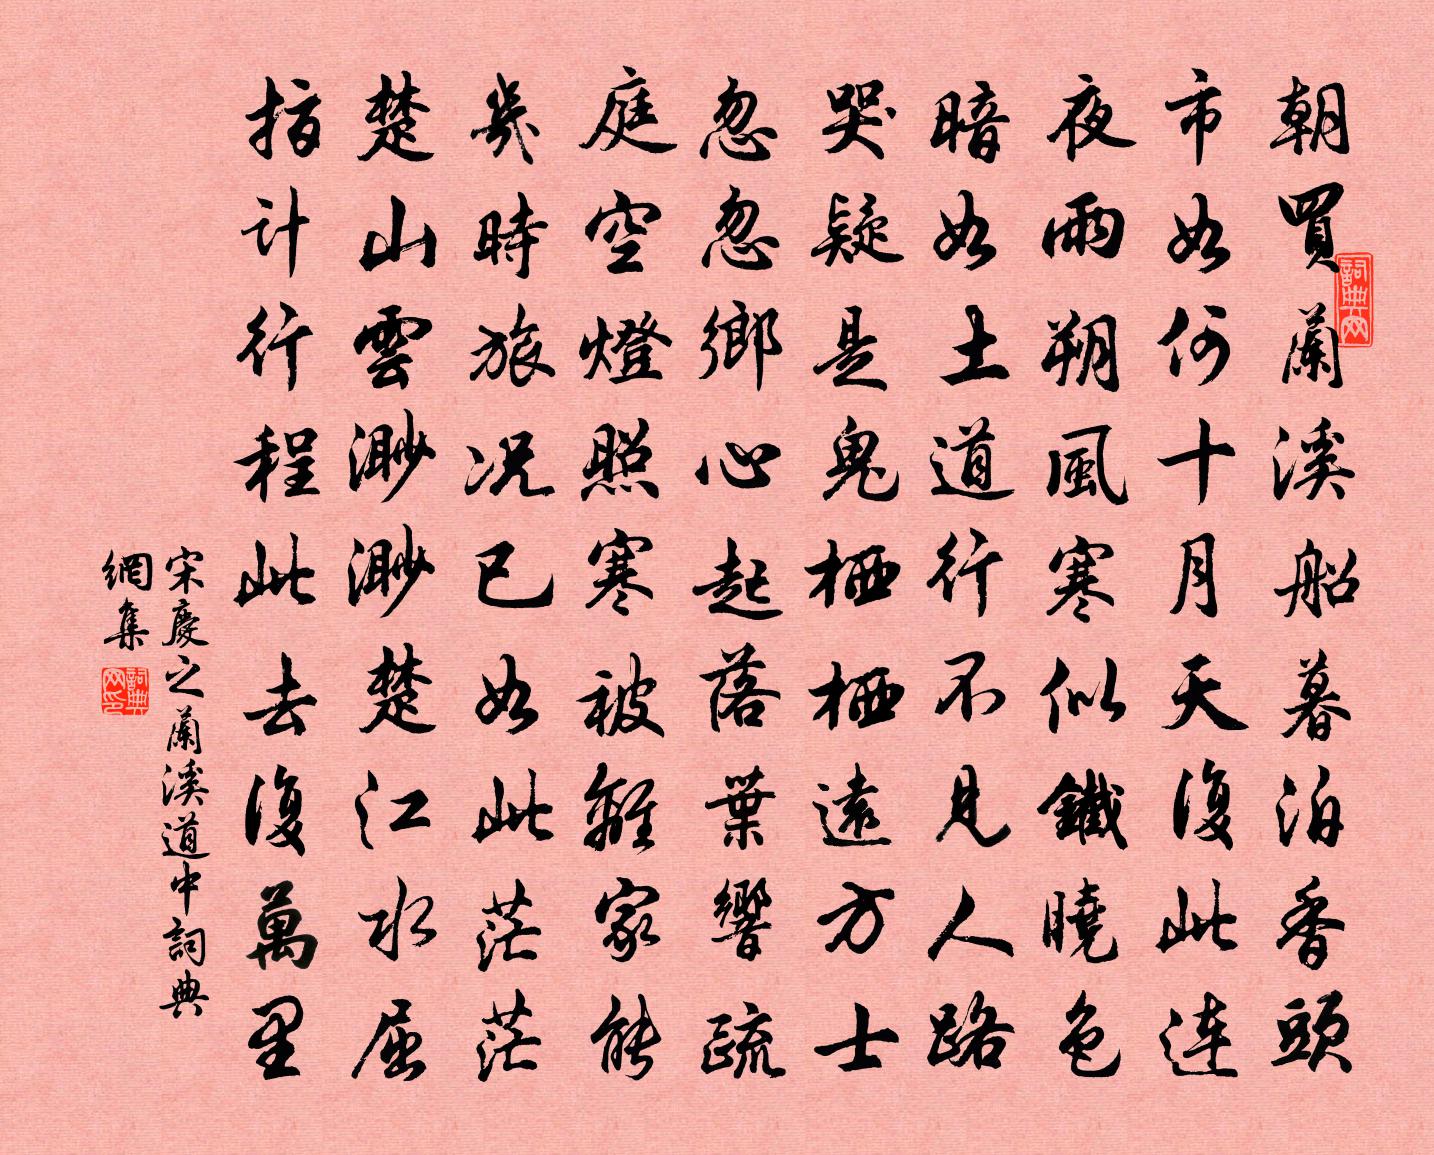 朝買蘭溪船暮泊香頭
市如何十月天復此連
夜雨朔風寒似鐵曉色
暗如土道行不見人路
哭疑是鬼栖栖遠方士
忽忽鄉心起落葉響疏
庭空燈照寒被離家能
幾時旅况已如此茫茫
楚山雲渺渺楚江水屈
指計行程此去復萬里
宋慶之蘭溪道中詞典
網集
詞典网
詞典网印